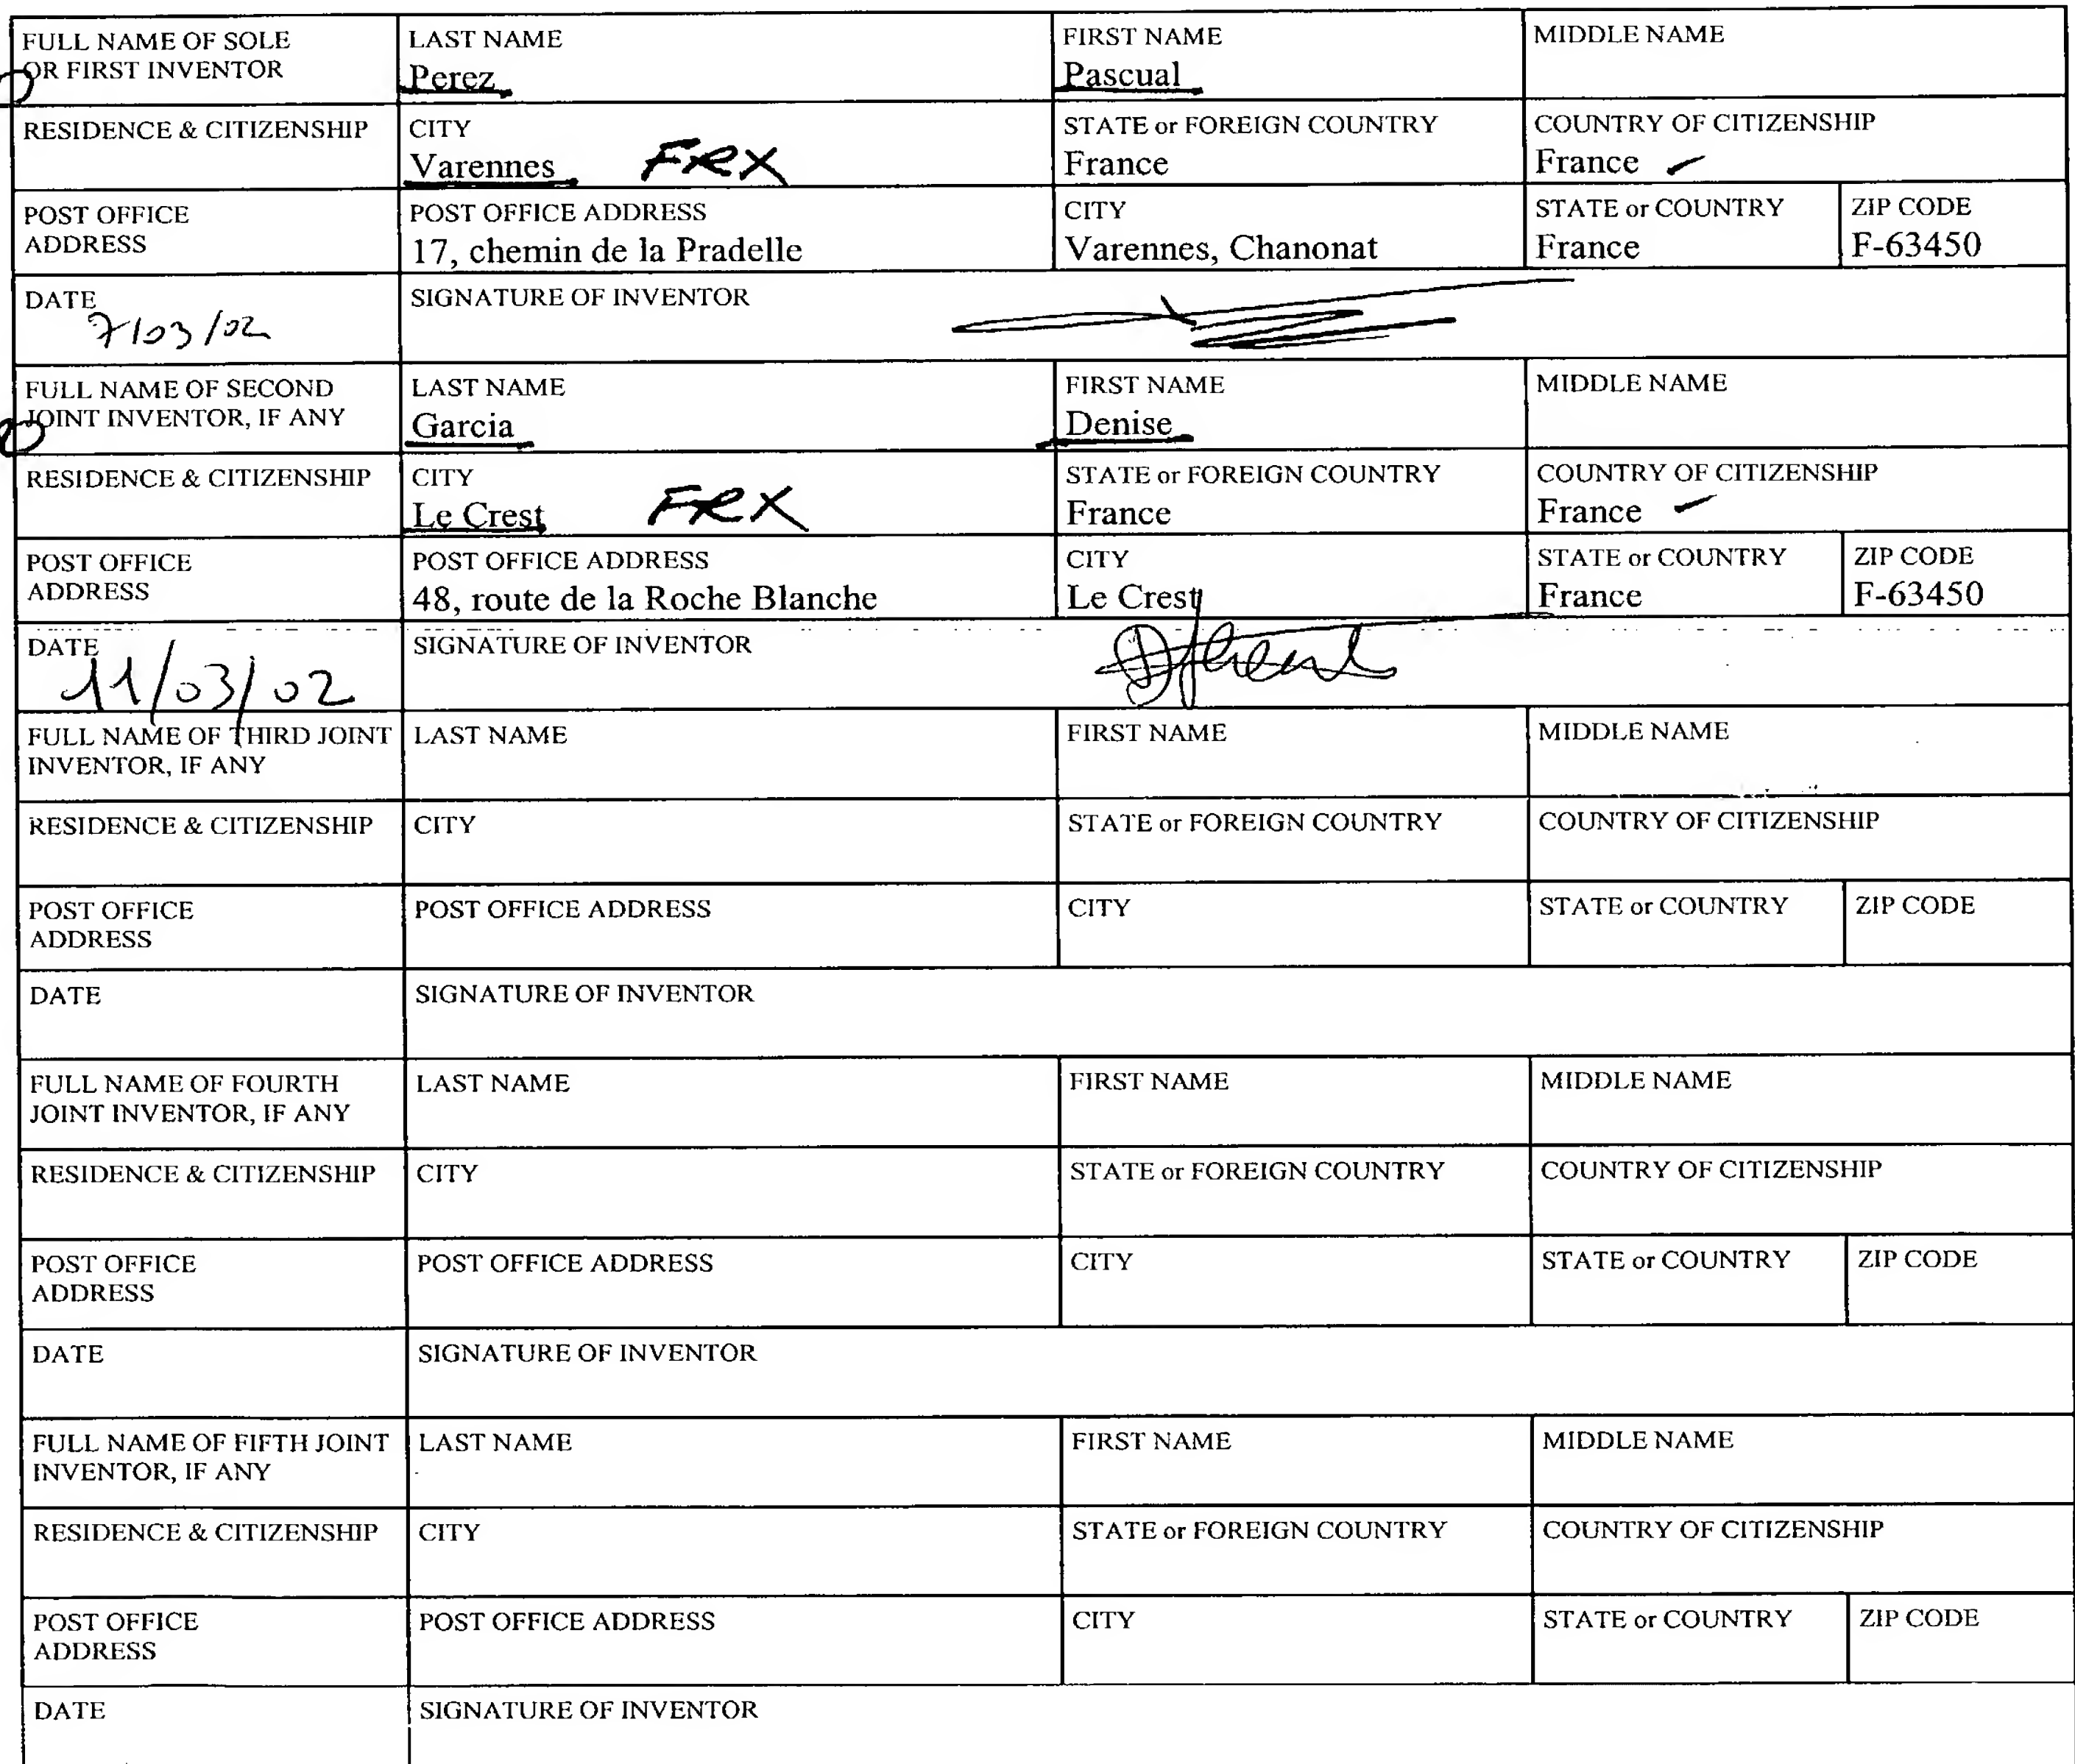 FULL NAME OF SOLE
OR FIRST INVENTOR
LAST NAME
Perez
FIRST NAME
Pascual
MIDDLE NAME
RESIDENCE & CITIZENSHIP
CITY
Varennes FRX
STATE or FOREIGN COUNTRY
France
COUNTRY OF CITIZENSHIP
France
POST OFFICE
ADDRESS
POST OFFICE ADDRESS
17, chemin de la Pradelle
CITY
Varennes, Chanonat
STATE or COUNTRY
France
ZIP CODE
F-63450
DATE
7/03/02
SIGNATURE OF INVENTOR
FULL NAME OF SECOND
JOINT INVENTOR, IF ANY
LAST NAME
Garcia
FIRST NAME
Denise
MIDDLE NAME
RESIDENCE & CITIZENSHIP
CITY
Le Crest FRX
STATE or FOREIGN COUNTRY
France
COUNTRY OF CITIZENSHIP
France
POST OFFICE
ADDRESS
POST OFFICE ADDRESS
48, route de la Roche Blanche
CITY
Le Crest
STATE or COUNTRY
France
ZIP CODE
F-63450
DATE
11/03/02
SIGNATURE OF INVENTOR
FULL NAME OF THIRD JOINT
INVENTOR, IF ANY
LAST NAME
FIRST NAME
MIDDLE NAME
RESIDENCE & CITIZENSHIP
CITY
STATE or FOREIGN COUNTRY
COUNTRY OF CITIZENSHIP
POST OFFICE
ADDRESS
POST OFFICE ADDRESS
CITY
STATE or COUNTRY
ZIP CODE
DATE
SIGNATURE OF INVENTOR
FULL NAME OF FOURTH
JOINT INVENTOR, IF ANY
LAST NAME
FIRST NAME
MIDDLE NAME
RESIDENCE & CITIZENSHIP
CITY
STATE or FOREIGN COUNTRY
COUNTRY OF CITIZENSHIP
POST OFFICE
ADDRESS
POST OFFICE ADDRESS
CITY
STATE or COUNTRY
ZIP CODE
DATE
SIGNATURE OF INVENTOR
FULL NAME OF FIFTH JOINT
INVENTOR, IF ANY
LAST NAME
FIRST NAME
MIDDLE NAME
RESIDENCE & CITIZENSHIP
CITY
STATE or FOREIGN COUNTRY
COUNTRY OF CITIZENSHIP
POST OFFICE
ADDRESS
POST OFFICE ADDRESS
CITY
STATE or COUNTRY
ZIP CODE
DATE
SIGNATURE OF INVENTOR